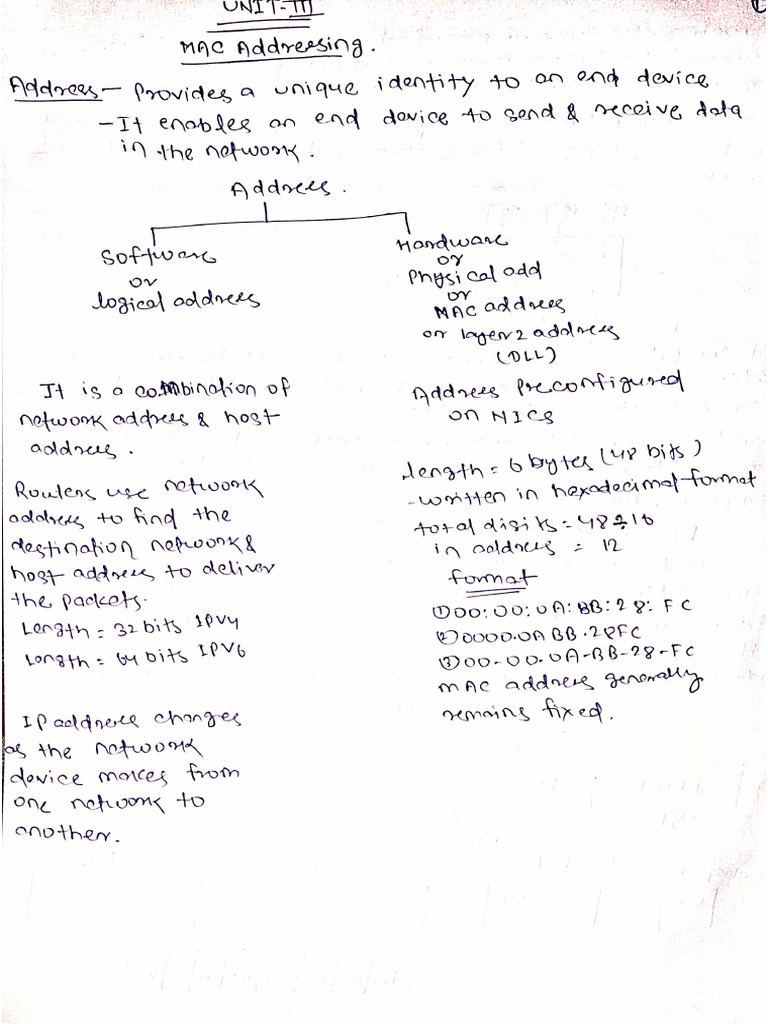 UNIT-III
MAC Addressing.
Address - Provides a unique identity to an end device
- It enables an end device to send & receive data
in the network.
Address.
Software
or
logical address
Hardware
or
Physical add
or
MAC address
or layer 2 address
(DLL)
It is a combination of
network address & host
address.
Routers use network
address to find the
destination network &
host address to deliver
the packets.
Length = 32 bits IPV4
Length = 64 bits IPV6
IP address changes
as the network
device moves from
one network to
another.
Address Preconfigured
on NICs
length = 6 bytes (48 bits)
- written in hexadecimal format
total digits = 48÷16
in address = 12
format
① 00:00:0A:BB:28:FC
② 0000.0ABB.28FC
③ 00-00.0A-BB-28-FC
MAC address generally
remains fixed.